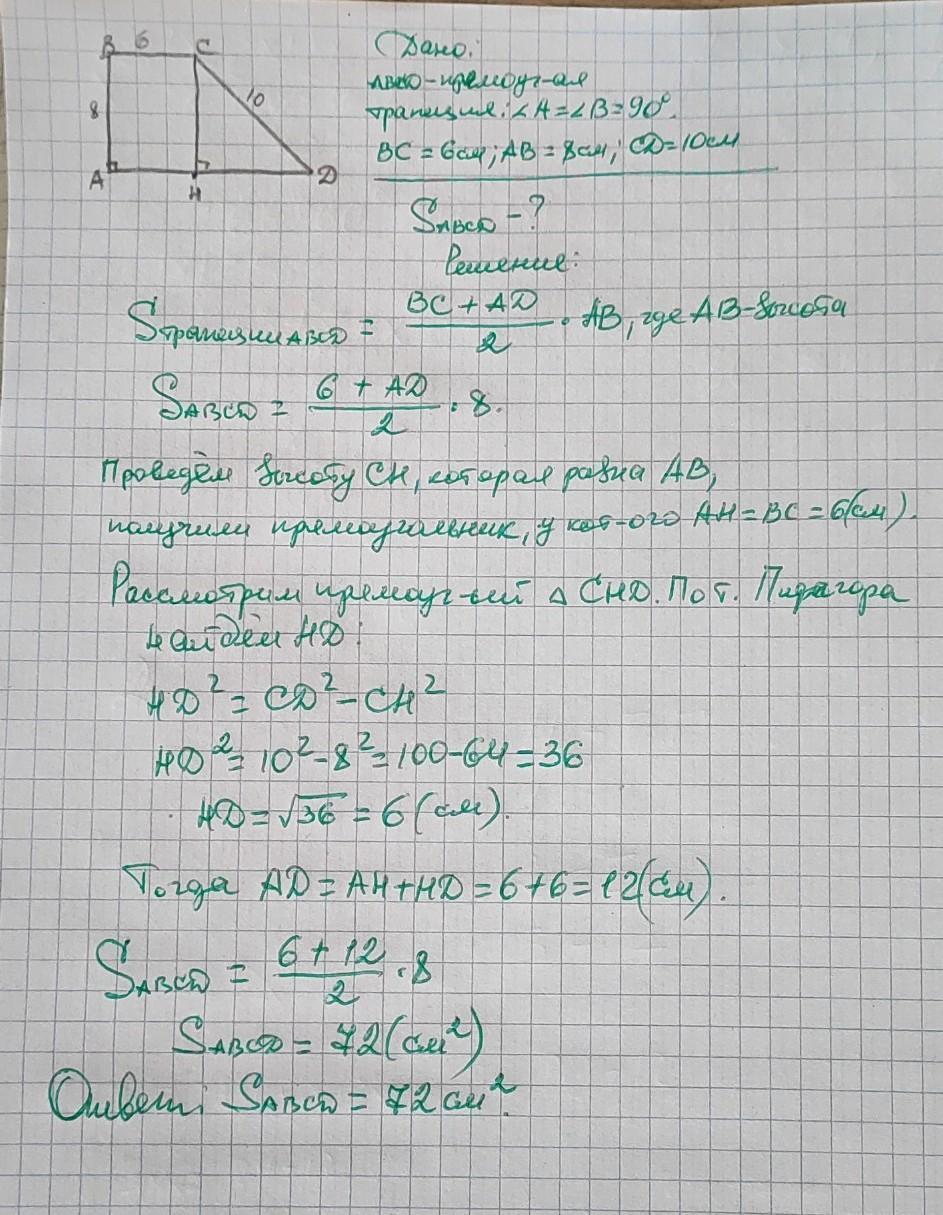 B 6 C
8
10
A
H
D
Дано:
ABCD-прямоуг-ая
трапеция: ∠A=∠B=90°.
BC=6см; AB=8см; CD=10см
SABCD-?
Решение:
Sтрапеции ABCD = (BC+AD)/2 · AB, где AB-высота
SABCD = (6+AD)/2 · 8.
Проведём высоту CH, которая равна AB,
получили прямоугольник, у кот-ого AH=BC=6(см).
Рассмотрим прямоуг-ый △ CHD. По т. Пифагора
найдём HD:
HD²=CD²-CH²
HD²=10²-8²=100-64=36
HD=√36=6(см).
Тогда AD=AH+HD=6+6=12(см).
SABCD = (6+12)/2 · 8
SABCD = 72(см²)
Ответ: SABCD = 72см².